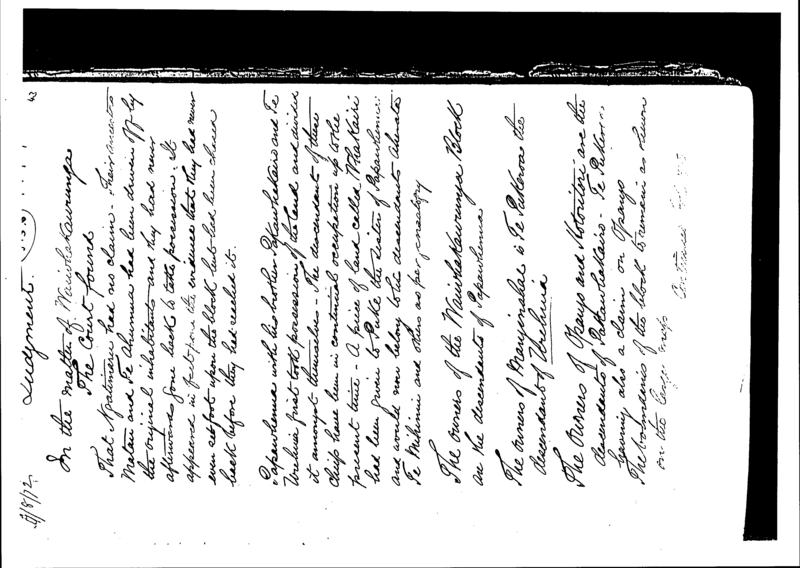 Judgment.
In the matter of Waiwhakaurunga
The Court found
That Ngatimaru had no claim - Their ancestors
Matau and Te Ahumua had been driven off by
the original inhabitants and they had never
afterwards gone back to take possession. It
appeared in fact from the evidence that they had never
even set foot upon the block but had been chased
back before they had reached it.
Papawhenua with his brother Pakawhakairo and Te
Urehina first took possession of the land and divided
it amongst themselves - The descendants of these
chiefs have been in continual occupation up to the
present time - A piece of land called Whakairi
had been given to Puke the sister of Papawhenua
and would now belong to the descendants
Te Mihinui and others as per ancestry
The owners of the Waiwhakaurunga Block
are the descendants of Papawhenua
The owners of is Te Pukeroa the
descendant of Urehina
The Owners of Opango and Motoritori are the
descendants of Pakawhakairo - Te Pukeroa
having also a claim on Opango
The boundaries of the block to remain as shewn
on the maps